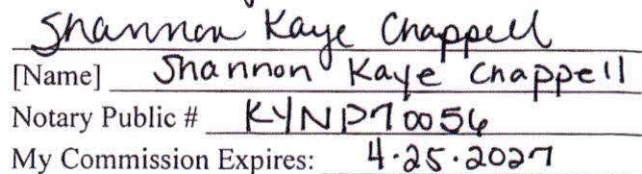 Shannon Kaye Chappell
[Name] Shannon Kaye Chappell
Notary Public # KYNP70056
My Commission Expires: 4.25.2027